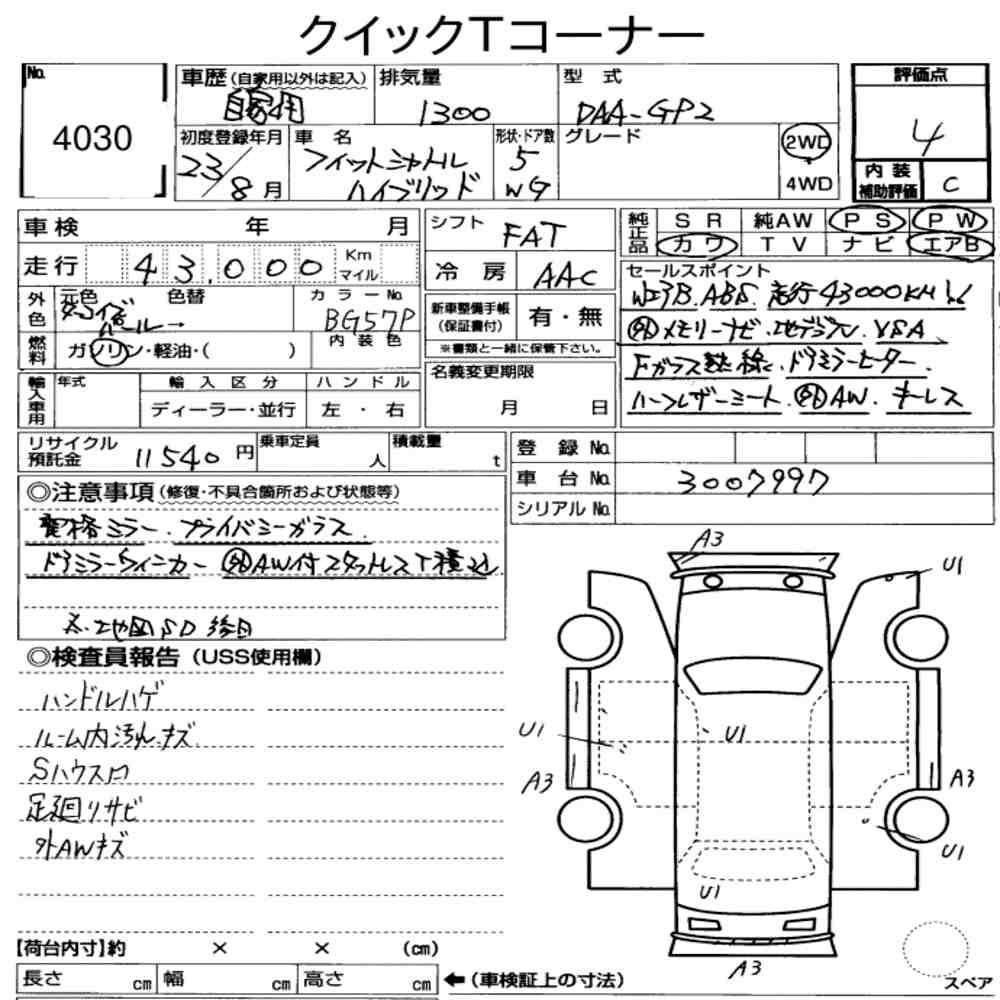 クイックTコーナー
No. 4030
車歴 (自家用以外は記入) 自家用
排気量 1300
型式 DAA-GP2
評価点 4
初度登録年月 23/8月
車名 フィットシャトル
ハイブリッド
形状・ドア数 5
WG
グレード
2WD
4WD
内装
補助評価 C
車検 年 月
シフト FAT
純正品 SR 純AW PS PW
カワ TV ナビ エアB
走行 43,000 Km
マイル
冷房 AAC
セールスポイント
WエアB. ABS. 走行43000KM
外メモリーナビ. 地デジTV. VSA
Fガラス熱線. ドアミラーヒーター.
ハーフレザーシート. 外AW. キーレス
外色 元色 色替
パール→
カラーNo. BG57P
新車整備手帳
(保証書付) 有・無
※書類と一緒に保管下さい。
燃料 ガソリン・軽油・( )
内装色
名義変更期限
月 日
輸入車用 年式 輸入区分 ハンドル
ディーラー・並行 左・右
リサイクル
預託金 11540円
乗車定員 人
積載量 t
登録No.
車台No. 3007997
シリアルNo.
◎注意事項 (修復・不具合箇所および状態等)
ミラー. プライバシーガラス
ドアミラーウィンカー 外AW付スタットレスT積込
◎検査員報告 (USS使用欄)
ハンドルハゲ
ルーム内汚れ.キズ
Sハウス口
足廻リサビ
外AWキズ
A3
U1
U1
U1
A3
A3
U1
U1
A3
スペア
【荷台内寸】約 × × (cm)
長さ cm 幅 cm 高さ cm ←(車検証上の寸法)